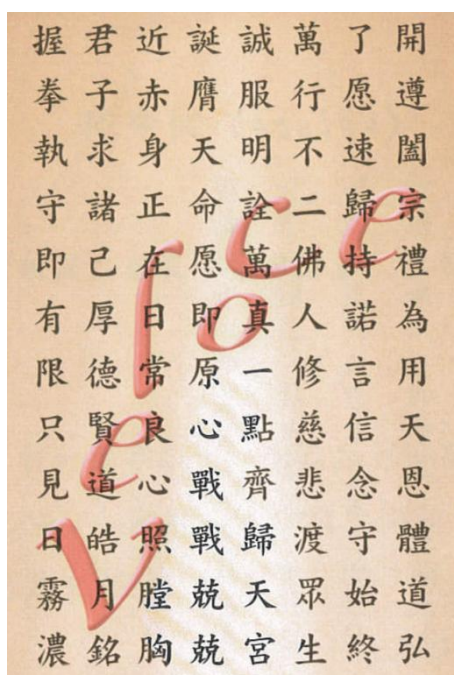 開遵闔宗禮為用天恩體道弘
了愿速歸持諾言信念守始終
萬行不二佛人修慈悲渡眾生
誠服明詮萬真一點齊歸天宮
誕膺天命愿即原心戰戰兢兢
近赤身正在日常良心照膛胸
君子求諸己厚德賢道皓月銘
握拳執守即有限只見日霧濃
Veloce